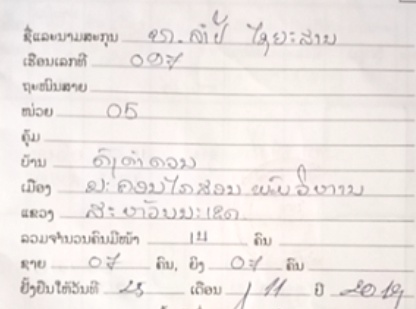 ຊື່ແລະນາມສະກຸນ ທ. ລຳປີ ໄຊຍະສານ
ເຮືອນເລກທີ 007
ຖະໜົນສາຍ
ໜ່ວຍ 05
ຄຸ້ມ
ບ້ານ
ເມືອງ ນະຄອນໄກສອນ ພົມວິຫານ
ແຂວງ ສະຫວັນນະເຂດ
ລວມຈຳນວນຄົນມີໜ້າ 14 ຄົນ
ຊາຍ 07 ຄົນ, ຍິງ 07 ຄົນ
ຢັ້ງຢືນໃຫ້ວັນທີ 25 ເດືອນ 11 ປີ 2019